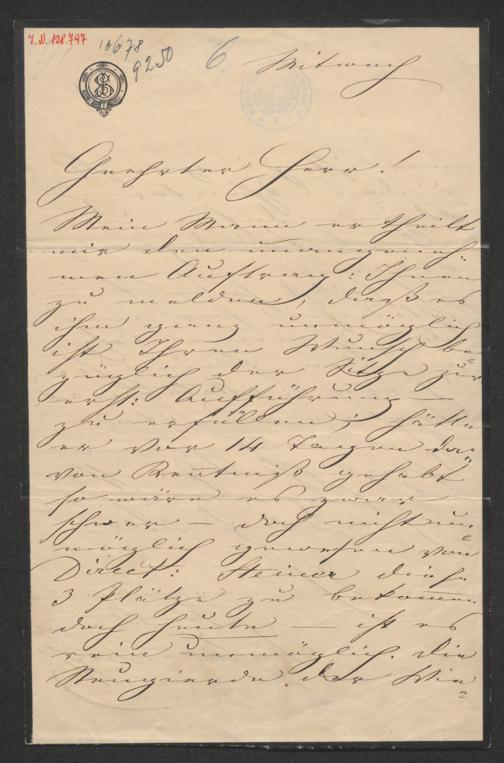 I. N. 128.797
10678
9250
6
Mitwoch
Geehrter Herr!
Mein Mann ertheilt
mir den unangeneh=
men Auftrag: Ihnen
zu melden, daß es
ihm ganz unmöglich
ist Ihren Wunsch be=
züglich der Sitze zur
erst: Aufführung —
zu erfüllen; hätte
er vor 14 Tagen da=
von Kentniß gehabt
so wäre es zwar
schwer — doch nicht un=
möglich gewesen von
Direct: Steiner diese
3 Plätze zu bekommen
doch heute — ist es
rein unmöglich. Die
Neugierde der Wie=